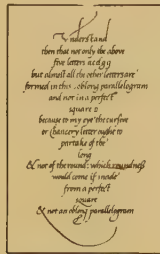 Understand
then that not only the above
five letters a c d g q
but almost all the other letters are
formed in this : oblong parallelogram
and not in a perfect
square
because to my eye the cursive
or Chancery letter ought to
partake of the
long
& not of the round: which roundness
would come if made
from a perfect
square
& not an oblong parallelogram